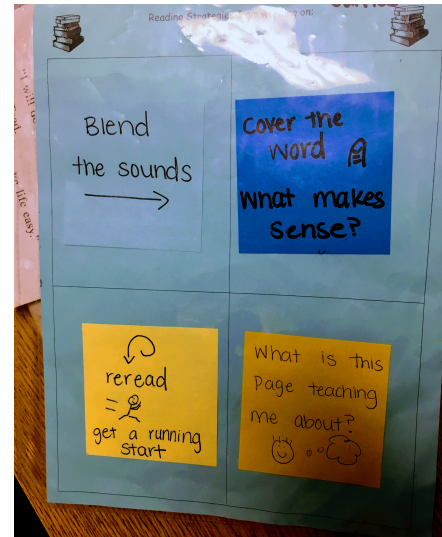 Reading Strategies
on:
Blend
the sounds
Cover the
Word
What makes
sense?
reread
get a running
start
What is this
Page teaching
me about?
"I will
life easy.